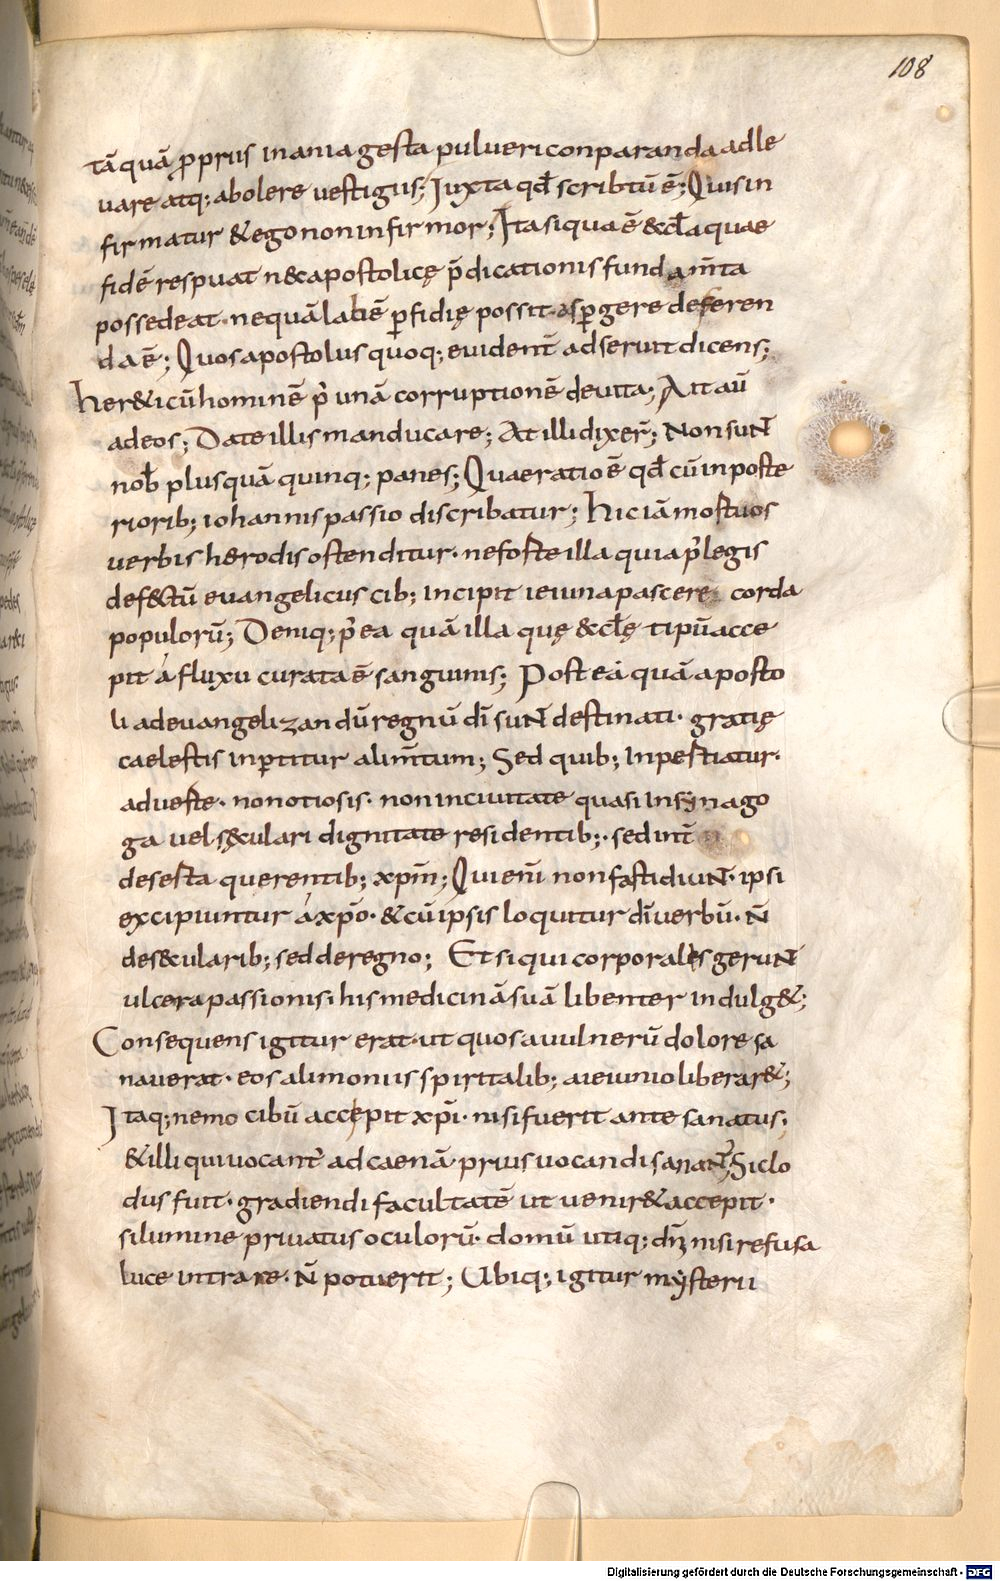 108
tā quā p̄prus inania gesta pulueri conparanda adle
uare atq; abolere uestigiis; Iuxta qđ scribtū ē; Quis in
firmatur & ego non infirmor; Ita siqua ē &cła quae
fidē respuat n&c apostolicę p̄dicationis fundam̄ta
possedeat · nequā labē p̄fidię possit · aspgere deferen
da ē; Quos apostolus quoq; euident̄ adseruit dicens;
her&icū hominē p̓ unā corruptionē deuita; Ait aū
ad eos; Date illis manducare; At illi dixer̄; Non suNT
nob̄ plus quā quinq; panes; Quae ratio ē qđ cū in poste
riorib; iohannis passio discribatur; hic iā mostuos
uerbis herodis ostenditur · nefoste illa quia p̓ legis
def&ctū euangelicus cib; incipit ieiuna pascere corda
populorū; Deniq; p̓ ea quā illa quę &cłę tipū acce
pit á fluxu curata ē sanguinis; Post eá quā aposto
li ad euangelizandū regnū dī suNT destinati · gratię
caelestis inptitur alim̄tum; Sed quib; inpestiatur ·
aduerte · non otiosis · non in ciuitate quasi in synago
ga uel sęculari dignitate residentib; · sed int̄
deserta querentib; xp̄m; Qui enī non fastidiuNT · ipsi
excipiuntur á xp̄o · & cū ipsis loquitur dī uerbū · N̄
de s&cularib; sed de regno; Et si qui corporales geruNT
ulcera passionis · his medicinā suā libenter indulg&;
Consequens igitur erat · ut quos a uulnerū dolore sa
nauerat · eos alimoniis spiritalib; a ieiunio liberar&;
Itaq; nemo cibū accepit xp̄i · nisi fuerit ante sanatus;
& illi qui uocant̓ ad caenā · prius uocandi sanaNT̓; Si clo
dus fuit · gradiendi facultatē ut uenir& accepit ·
si lumine priuatus oculorū · domū utiq; dn̄i nisi refusa
luce intrare · N̄ potuerit; Ubiq; igitur mẏsterii
Digitalisierung gefördert durch die Deutsche Forschungsgemeinschaft - DFG